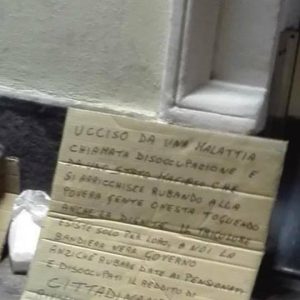 UCCISO DA UNA MALATTIA
CHIAMATA DISOCCUPAZIONE E
DA UNO STATO CHE
SI ARRICCHISCE RUBANDO ALLA
POVERA GENTE ONESTA TOGLIENDO
ANCHE LA DIGNITÀ IL TRICOLORE
ESISTE SOLO PER LORO, A NOI LA
BANDIERA NERA GOVERNO
ANZICHE RUBARE DATE AI PENSIONATI
E DISOCCUPATI IL REDDITO DI
CITTADINANZA